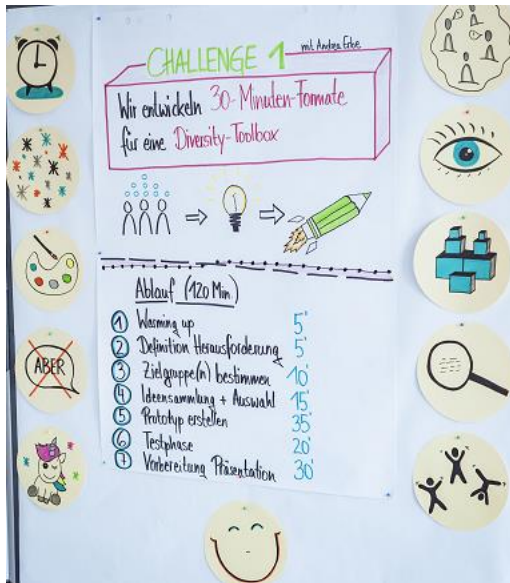 CHALLENGE 1 mit Andrea Erbe
Wir entwickeln 30-Minuten-Formate
für eine Diversity-Toolbox
Ablauf (120 Min.)
1 Warming up 5'
2 Definition Herausforderung 5'
3 Zielgruppe(n) bestimmen 10'
4 Ideensammlung + Auswahl 15'
5 Prototyp erstellen 35'
6 Testphase 20'
7 Vorbereitung Präsentation 30'
ABER